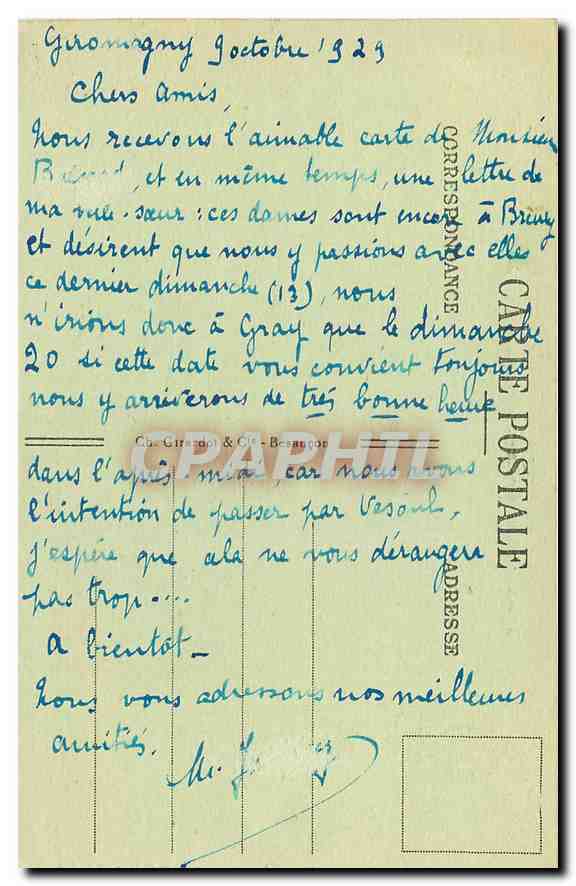 Giromagny 9 octobre 1929
Chers Amis,
Nous recevons l'aimable carte de Monsieur
et en même temps, une lettre de
ma sœur : ces dames sont encore à
et désirent que nous y passions avec elles
ce dernier dimanche (13), nous
n'irions donc à Gray que le dimanche
20 si cette date vous convient toujours
nous y arriverons de très bonne heure
Ch. Girardot & Cie - Besançon
CPARAMA
dans l'après midi, car nous avons
l'intention de passer par Vesoul,
j'espère que cela ne vous dérangera
pas trop....
A bientôt _
Nous vous adressons nos meilleures
amitiés.
M.
CARTE POSTALE
CORRESPONDANCE
ADRESSE